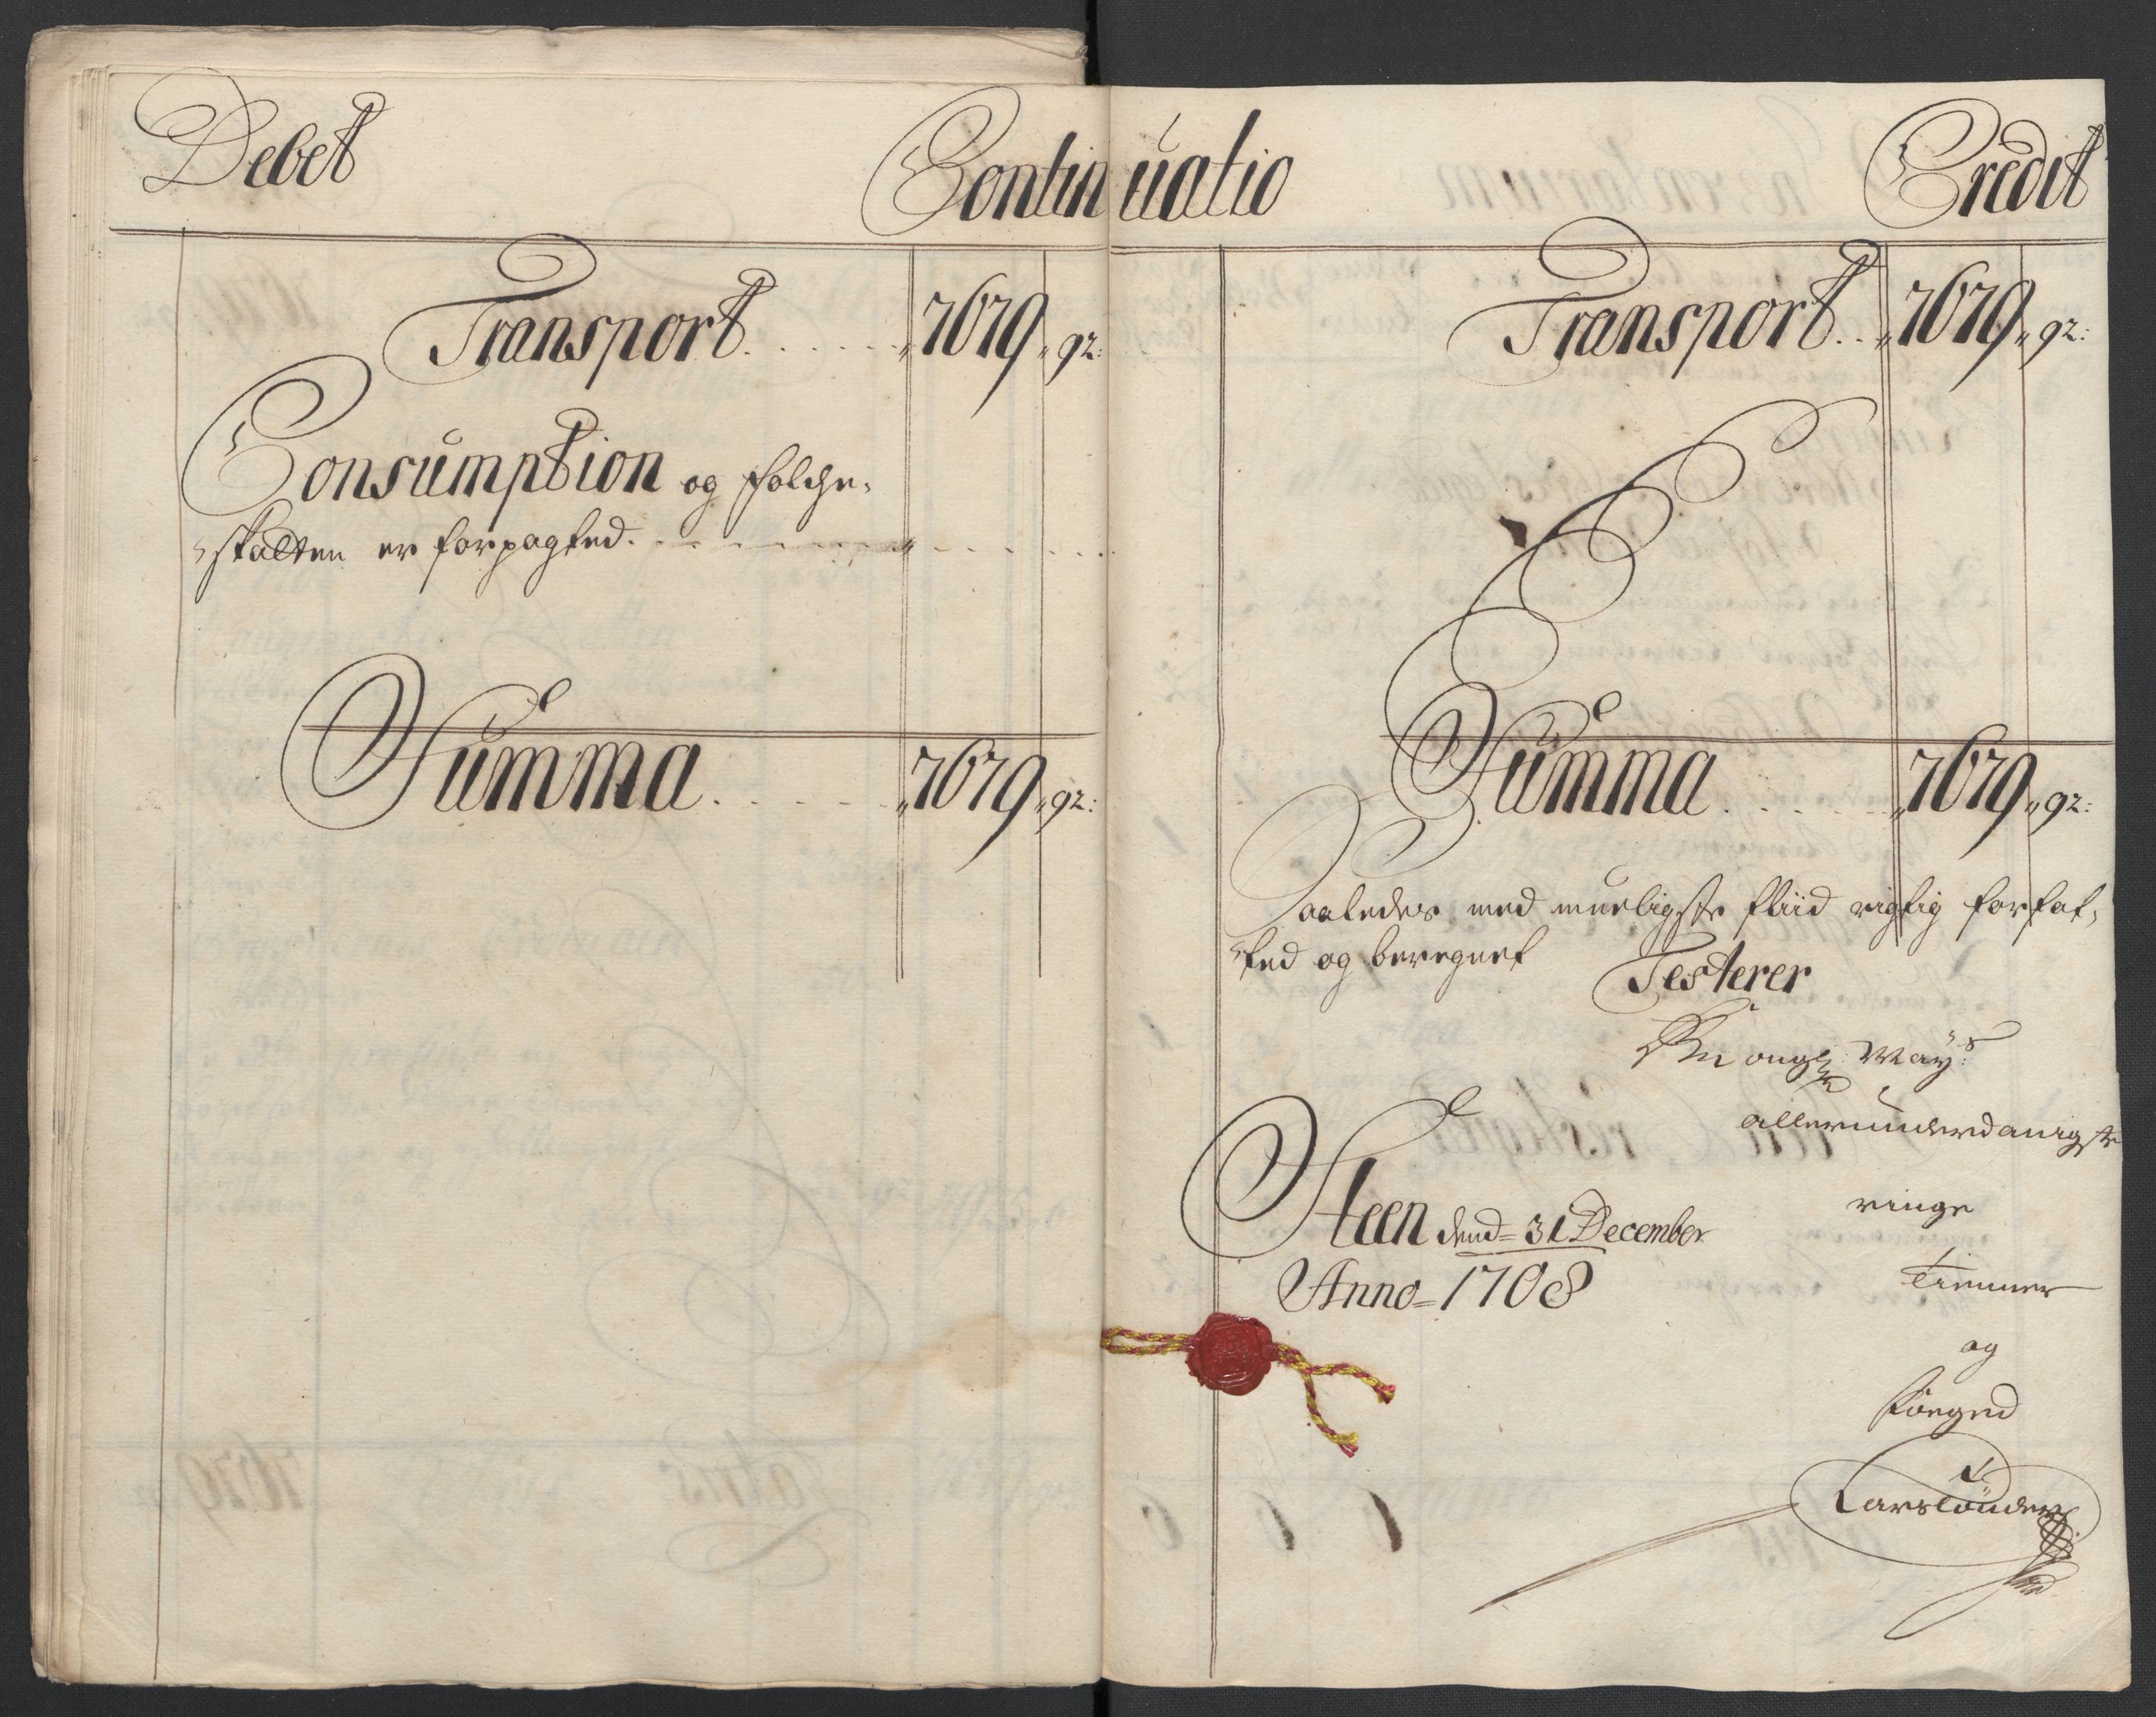 Debet
Continuatio
Credit
Transport. . . . . . „ 7679 „ 92:
Consumption og folche-
skatten er forpagted. . . . . . . . „ . . . .
Summa. . . . . . „ 7679 „ 92:
Transport. . „ 7679 „ 92:
Summa. . . . . . „ 7679 „ 92:
Saaledes med mueligste fliid rigtig forfat-
ted og beregnet
Testerer
Kongl: May:s
allerunderdanigste
ringe
Tienner
og
Foeged
Steen dend= 31 December
Anno= 1708